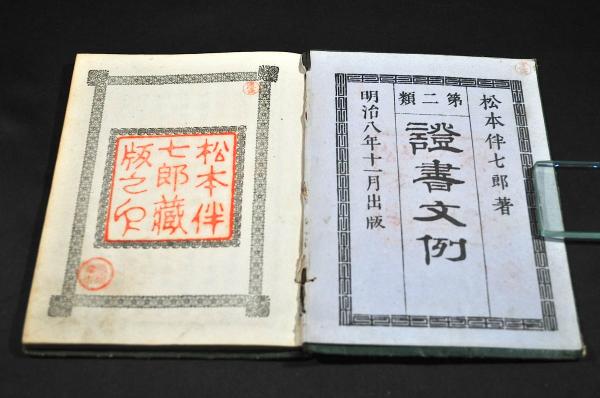 松本伴七郎著
第二類
證書文例
明治八年十一月出版
松本伴
七郎藏
版之印